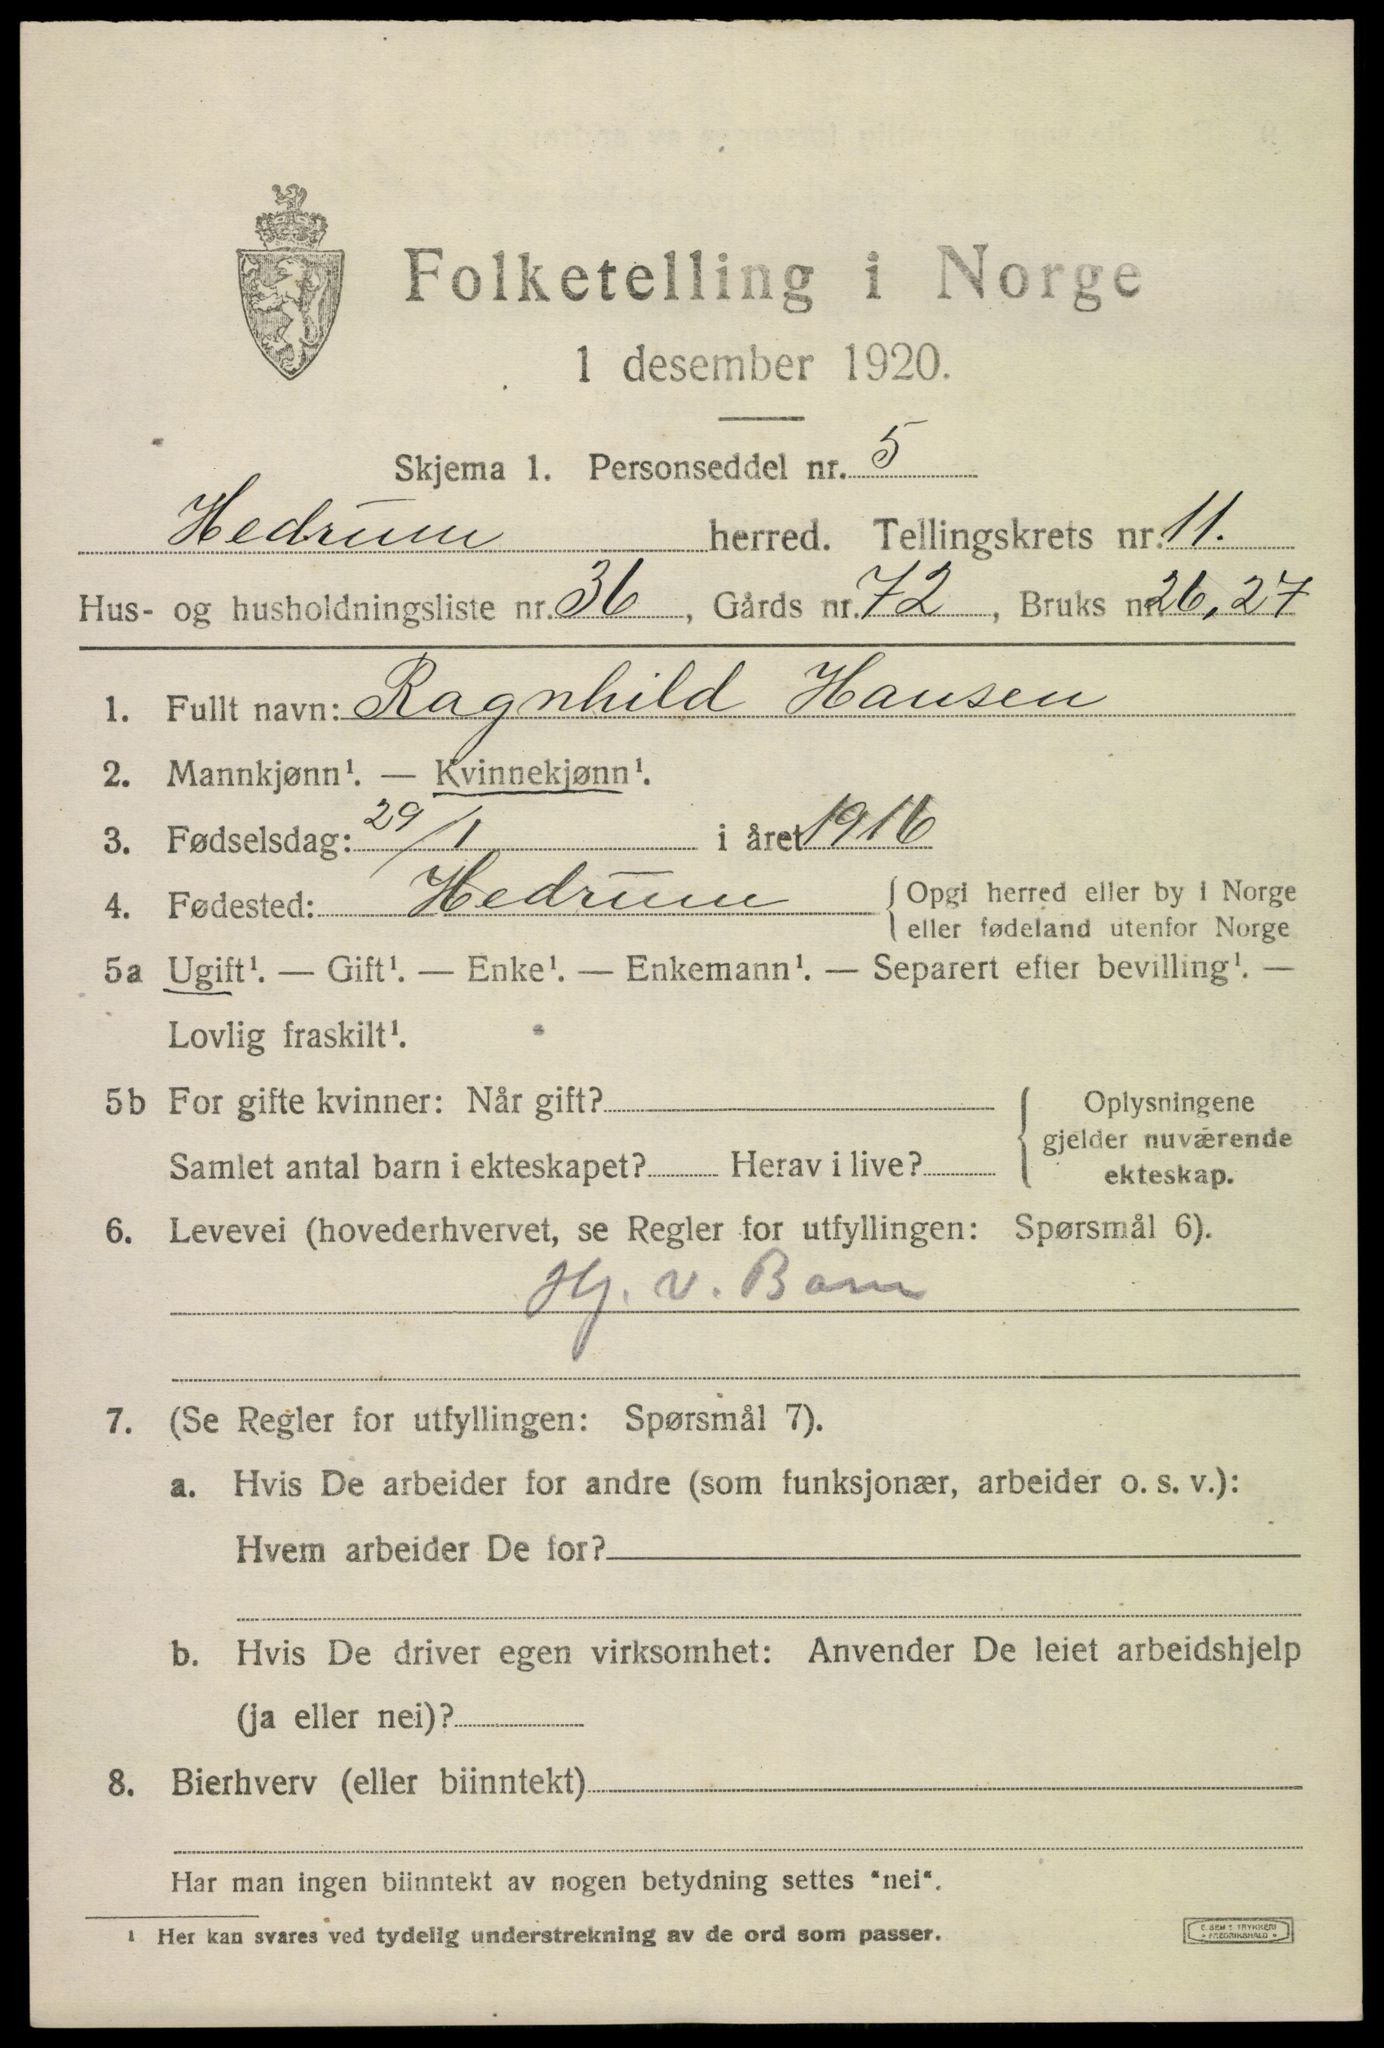 Folketelling i Norge
1 desember 1920.
Skjema 1. Personseddel nr. 5
Hedrum herred. Tellingskrets nr. 11.
Hus- og husholdningsliste nr. 36, Gårds nr. 72, Bruks nr. 26, 27
1. Fullt navn: Ragnhild Hansen
2. Mannkjønn¹. — Kvinnekjønn¹.
3. Fødselsdag: 29/1 i året 1916
4. Fødested: Hedrum { Opgi herred eller by i Norge
eller fødeland utenfor Norge
5a Ugift¹. — Gift¹. — Enke¹. — Enkemann¹. — Separert efter bevilling¹. —
Lovlig fraskilt¹.
5b For gifte kvinner: Når gift? { Oplysningene
gjelder nuværende
Samlet antal barn i ekteskapet? Herav i live? ekteskap.
6. Levevei (hovederhvervet, se Regler for utfyllingen: Spørsmål 6).
Hj. v. Barn
7. (Se Regler for utfyllingen: Spørsmål 7).
a. Hvis De arbeider for andre (som funksjonær, arbeider o. s. v.):
Hvem arbeider De for?
b. Hvis De driver egen virksomhet: Anvender De leiet arbeidshjelp
(ja eller nei)?
8. Bierhverv (eller biinntekt)
Har man ingen biinntekt av nogen betydning settes "nei".
¹ Her kan svares ved tydelig understrekning av de ord som passer.
TRYKKERI
FREDRIKSHALD